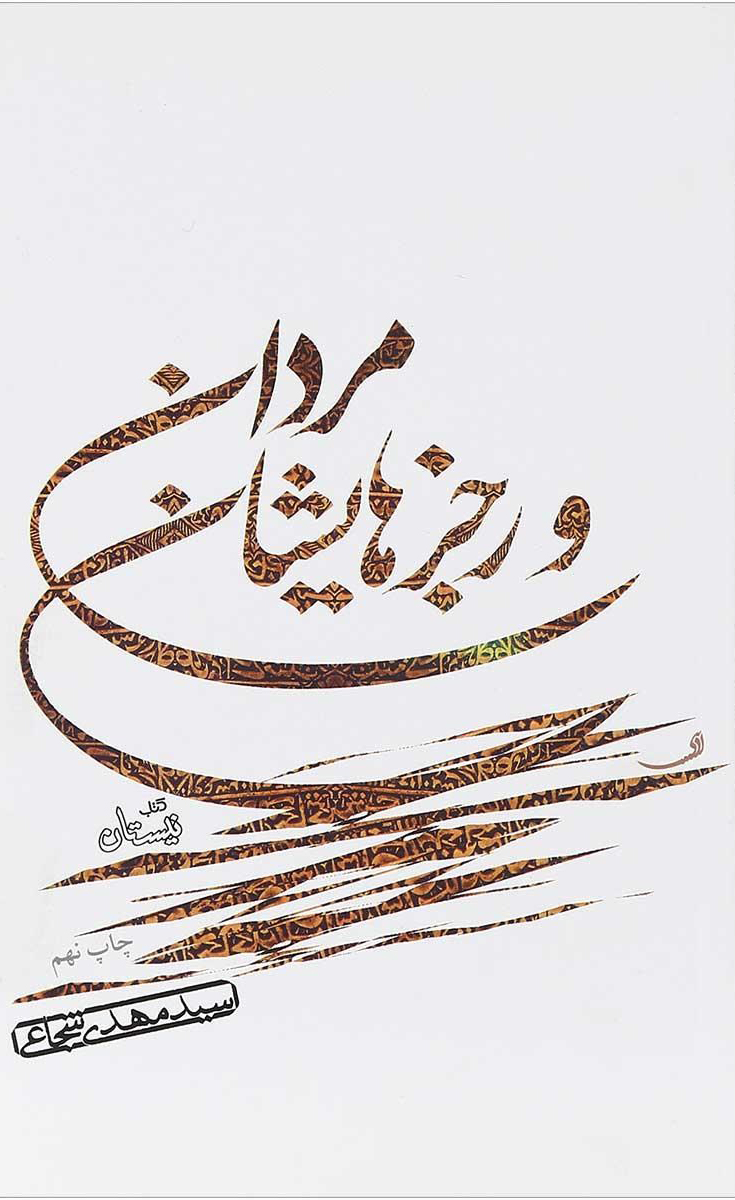 مردان
و رجزهایشان
کتاب
نیستان
چاپ نهم
سید مهدی شجاعی